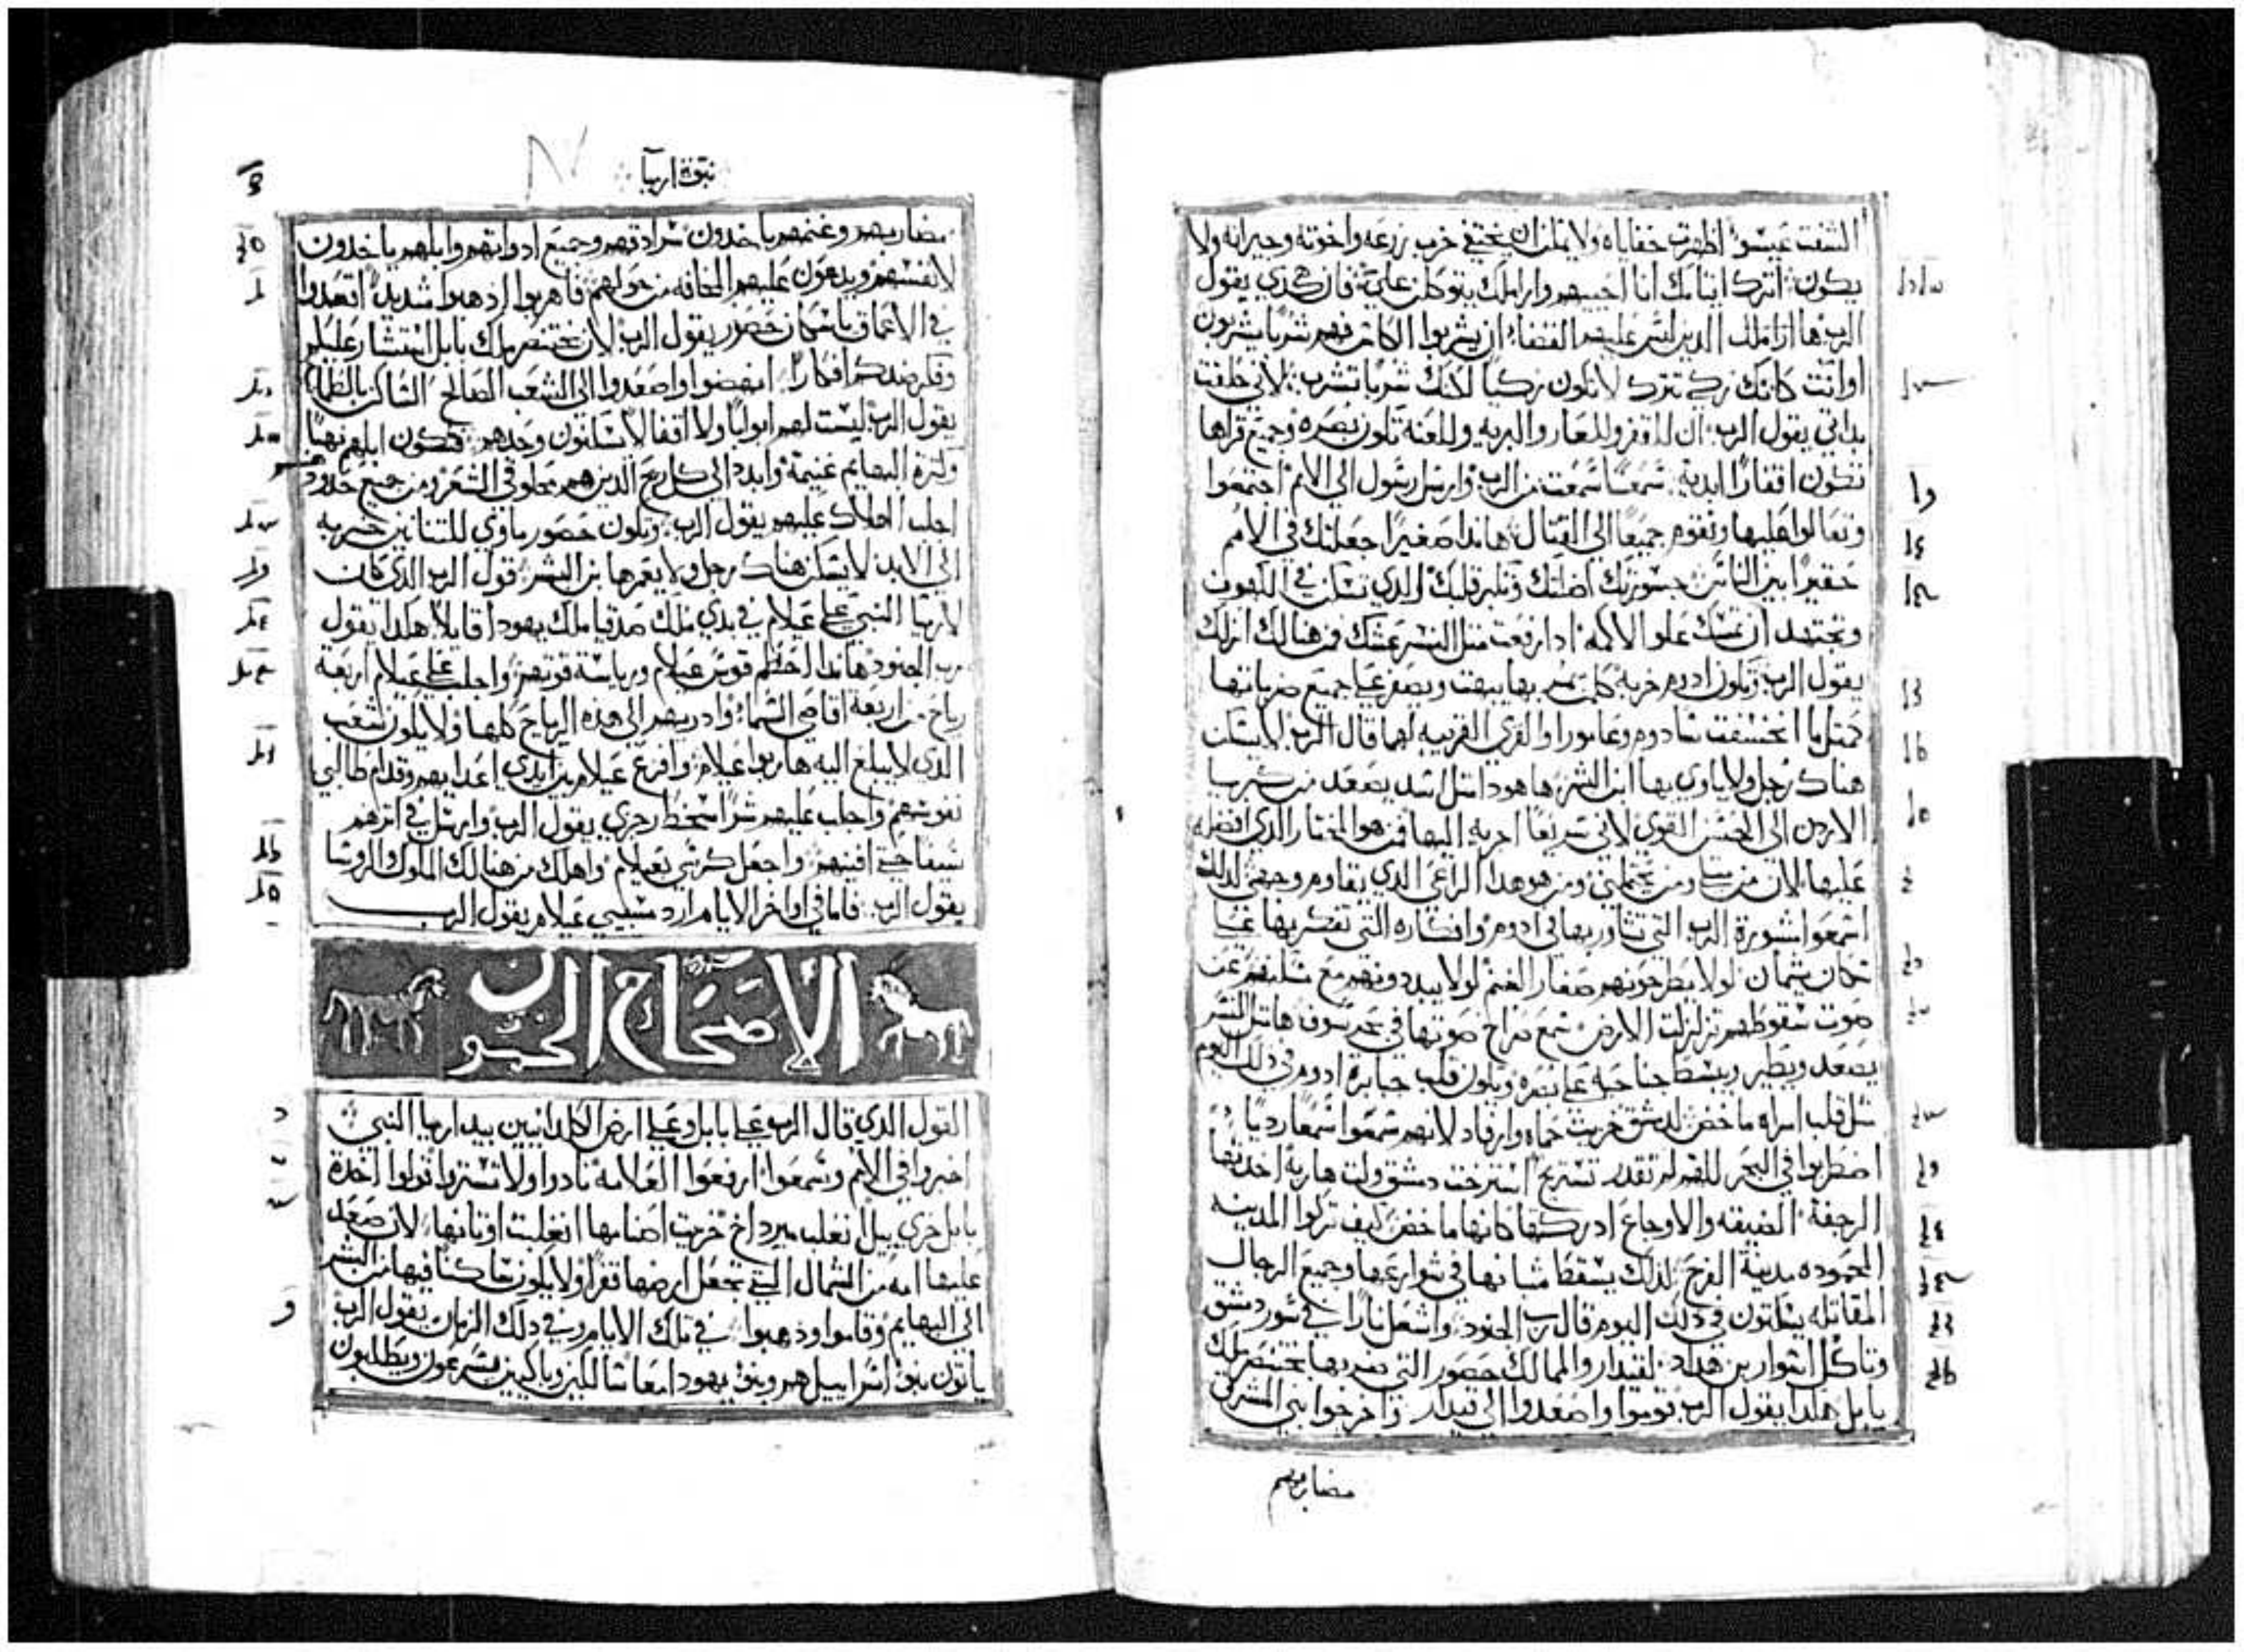 الشفت عيسوا اظهرت خفاياه ولا يمكن ان يختفي خرب زرعه واخوته وجيرانه ولا
يكون اترك ايتامك انا احييهم واراملك يتوكلن علي فان هكذي يقول
الرب ها ان اوليك الذين ليس عليهم القضاء ان يشربوا الكاس فهم شربا يشربون
او انت كانك زكي تترك لا تكون زكيا لكنك شربا تشرب لاني حلفت
بذاتي يقول الرب ان للقفر وللعار والبريه وللعنه تكون بصره وجميع قراها
تكون اقفارا ابديه سمعا سمعت من الرب وارسل رسول الي الامم اجتمعوا
وتعالوا عليها ونقوم جميعا الي القتال هاندا صغيرا جعلتك في الامم
حقيرا بين الناس جسورتك اضلتك وتكبر قلبك الذي تسكن في الكهوف
وتجتهد ان تمسك علو الاكمه اذا رفعت مثل النسر عشك فمن هنالك انزلك
يقول الرب وتكون ادوم خربه كل من يمر بها يبهت ويصفر علي جميع ضرباتها
كمثل ما انخسفت سادوم وعامورا والقري القريبه لهما قال الرب لا يسكن
هناك رجل ولا ياوي بها ابن البشر ها هوذا مثل اسد يصعد من كبريا
الاردن الي الحسن القوي لاني سريعا اجريه اليها فمن هو المختار الذي افضله
عليها لان من مثلي ومن يحتملني ومن هو هذا الراعي الذي يقاوم وجهي لذلك
اسمعوا مشورة الرب التي تشاور بها في ادوم وافكاره التي تفكر بها علي
سكان تيمان لولا يطرحونهم صغار الغنم لولا يبددونهم مع مسكنهم عن
صوت سقوطهم تزلزلت الارض سمع صراخ صوتها في بحر سوف ها مثل النسر
يصعد ويطير ويبسط جناحيه علي بصره ويكون قلب جبابرة ادوم في ذلك اليوم
مثل قلب امراه ماخض لدمشق خزيت حماه وارفاد لانهم سمعوا سمعا رديا
اضطربوا في البحر للهم لم تقدر تستريح استرخت دمشق ولت هاربة اخذتها
الرجفة الضيقه والاوجاع ادركتها كانها ماخض كيف تركوا المدينه
المحموده مدينة الفرح لذلك يسقط شبانها في شوارعها وجميع الرجال
المقاتله يسكتون في ذلك اليوم قال رب الجنود واشعل نارا في سور دمشق
وتاكل اسوار بن هداد لقيدار والممالك حصور التي ضربها بختنصر ملك
بابل هكذا يقول الرب قوموا واصعدوا الي قيدار واخرجوا بني المشرق
مضاربهم
نبوة ارميا
مضاربهم وغنمهم ياخدون سرادقهم وجميع ادواتهم وابلهم ياخدون
لانفسهم ويدعون عليهم المخافه من حولهم فاهربوا اذهبوا شديدا اقعدوا
في الاعماق يا سكان حصور يقول الرب لان بختنصر ملك بابل استشار عليكم
وفكر ضدكم افكارا انهضوا واصعدوا الي الشعب الصالح الساكن بالطمان
يقول الرب ليست لهم ابوابا ولا اقفالا يسكنون وحدهم فتكون ابلهم نهبا
وكثرة البهايم غنيمة وابددهم الي كل ريح الذين هم محلوقي الشعر ومن جميع حدودهم
اجلب الهلاك عليهم يقول الرب وتكون حصور ماوي للتنانين خربه
الي الابد لا يسكن هناك رجل ولا يعمرها بن البشر قول الرب الذي كان
لارميا النبي علي عيلام في بدي ملك صدقيا ملك يهودا قايلا هكذا يقول
رب الجنود هاندا احطم قوس عيلام ورياسة قوتهم واجلب علي عيلام اربعة
رياح من اربعة اقاصي السماء واذريهم الي هذه الرياح كلها ولا يكون شعب
الذي لا يبلغ اليه هاربوا عيلام وافزع عيلام بين ايدي اعدايهم وقدام طالبي
نفوسهم واجلب عليهم شرا سخط رجزي يقول الرب وارسل في اثرهم
سيفا حتي افنيهم واجعل كرسي بعيلام واهلك من هنالك الملوك والروسا
يقول الرب فاما في اواخر الايام ارد مسبيي عيلام يقول الرب
الاصحاح الخمسون
القول الذي قال الرب علي بابل وعلي ارض الكلدانيين بيد ارميا النبي
اخبروا في الامم وسمعوا ارفعوا العلامه نادوا ولا تستروا قولوا اخدة
بابل خزي بيل انغلب ميرداخ خزيت اصنامها انغلبت اوثانها لان صعد
عليها امه من الشمال التي تجعل ارضها قفرا ولا يكون ساكنا فيها من البشر
الي البهايم وقاموا وذهبوا في تلك الايام وفي ذلك الزمان يقول الرب
ياتون بنو اسراييل هم وبنو يهودا معا سالكين وباكين يسرعون ويطلبون